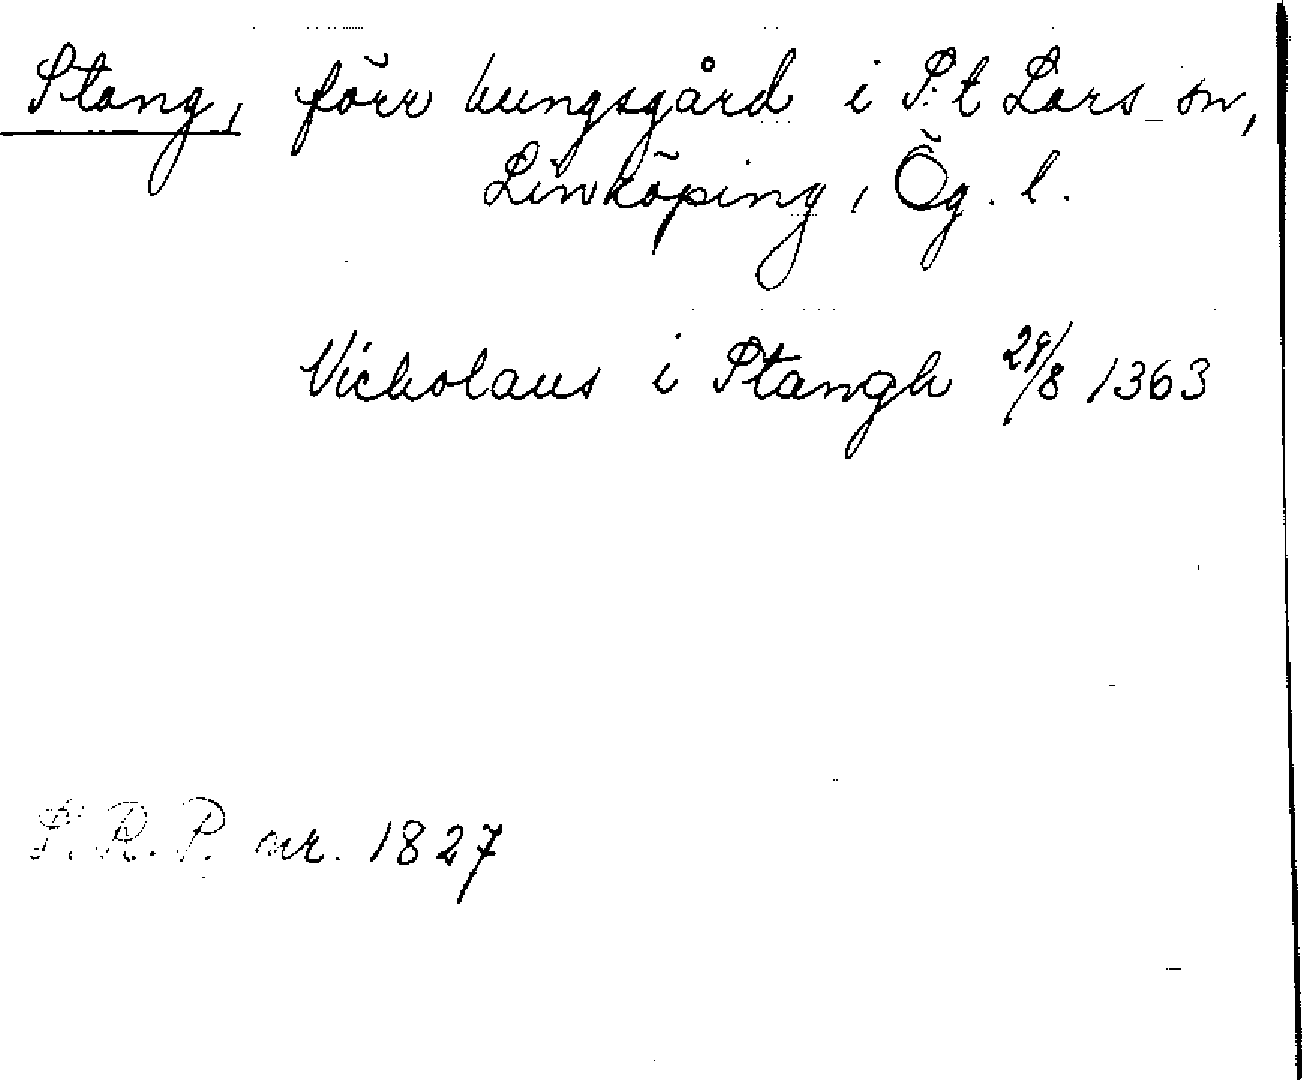 Stang, förr kungsgård i S:t Lars sn,
Linköping, Ög. l.
Nicholaus i Stangh 29/8 1363
S.R.P. nr. 1827